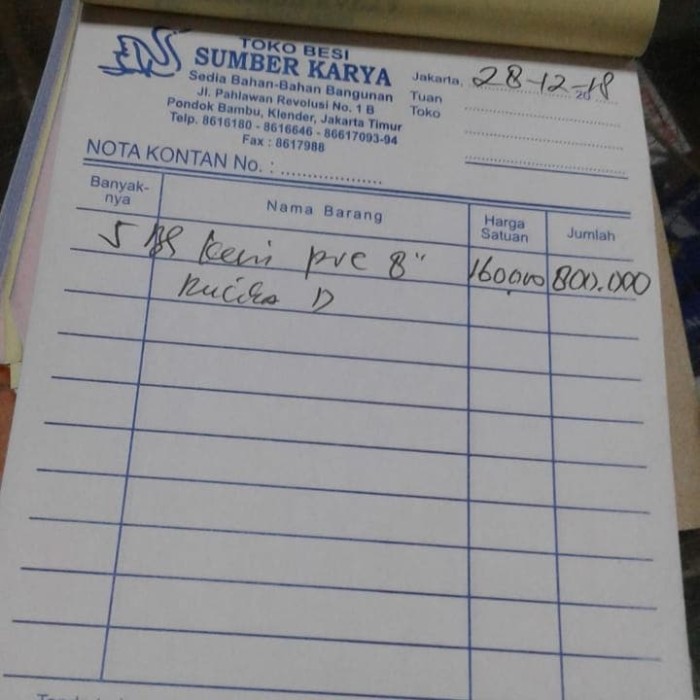 TOKO BESI
SUMBER KARYA
Sedia Bahan-Bahan Bangunan
Jl. Pahlawan Revolusi No. 1 B
Pondok Bambu, Klender, Jakarta Timur
Telp. 8616180 - 8616646 - 86617093-94
Fax : 8617988
Jakarta, 28-12-18 20
Tuan
Toko
NOTA KONTAN No. :
Banyak-nya Nama Barang Harga Satuan Jumlah
5 pvc 8" 160000 800.000
Rucika D